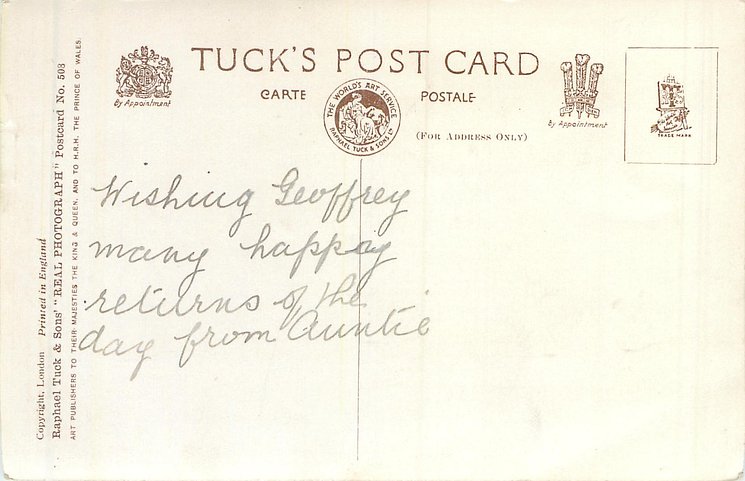 TUCK'S POST CARD
CARTE POSTALE
(FOR ADDRESS ONLY)
By Appointment
THE WORLD'S ART SERVICE
RAPHAEL TUCK & SONS LTD
by Appointment
TRADE MARK
Wishing Geoffrey
many happy
returns of the
day from Auntie
Copyright, London Printed in England
Raphael Tuck & Sons' "REAL PHOTOGRAPH" Postcard No. 503
ART PUBLISHERS TO THEIR MAJESTIES THE KING & QUEEN, AND TO H.R.H. THE PRINCE OF WALES.